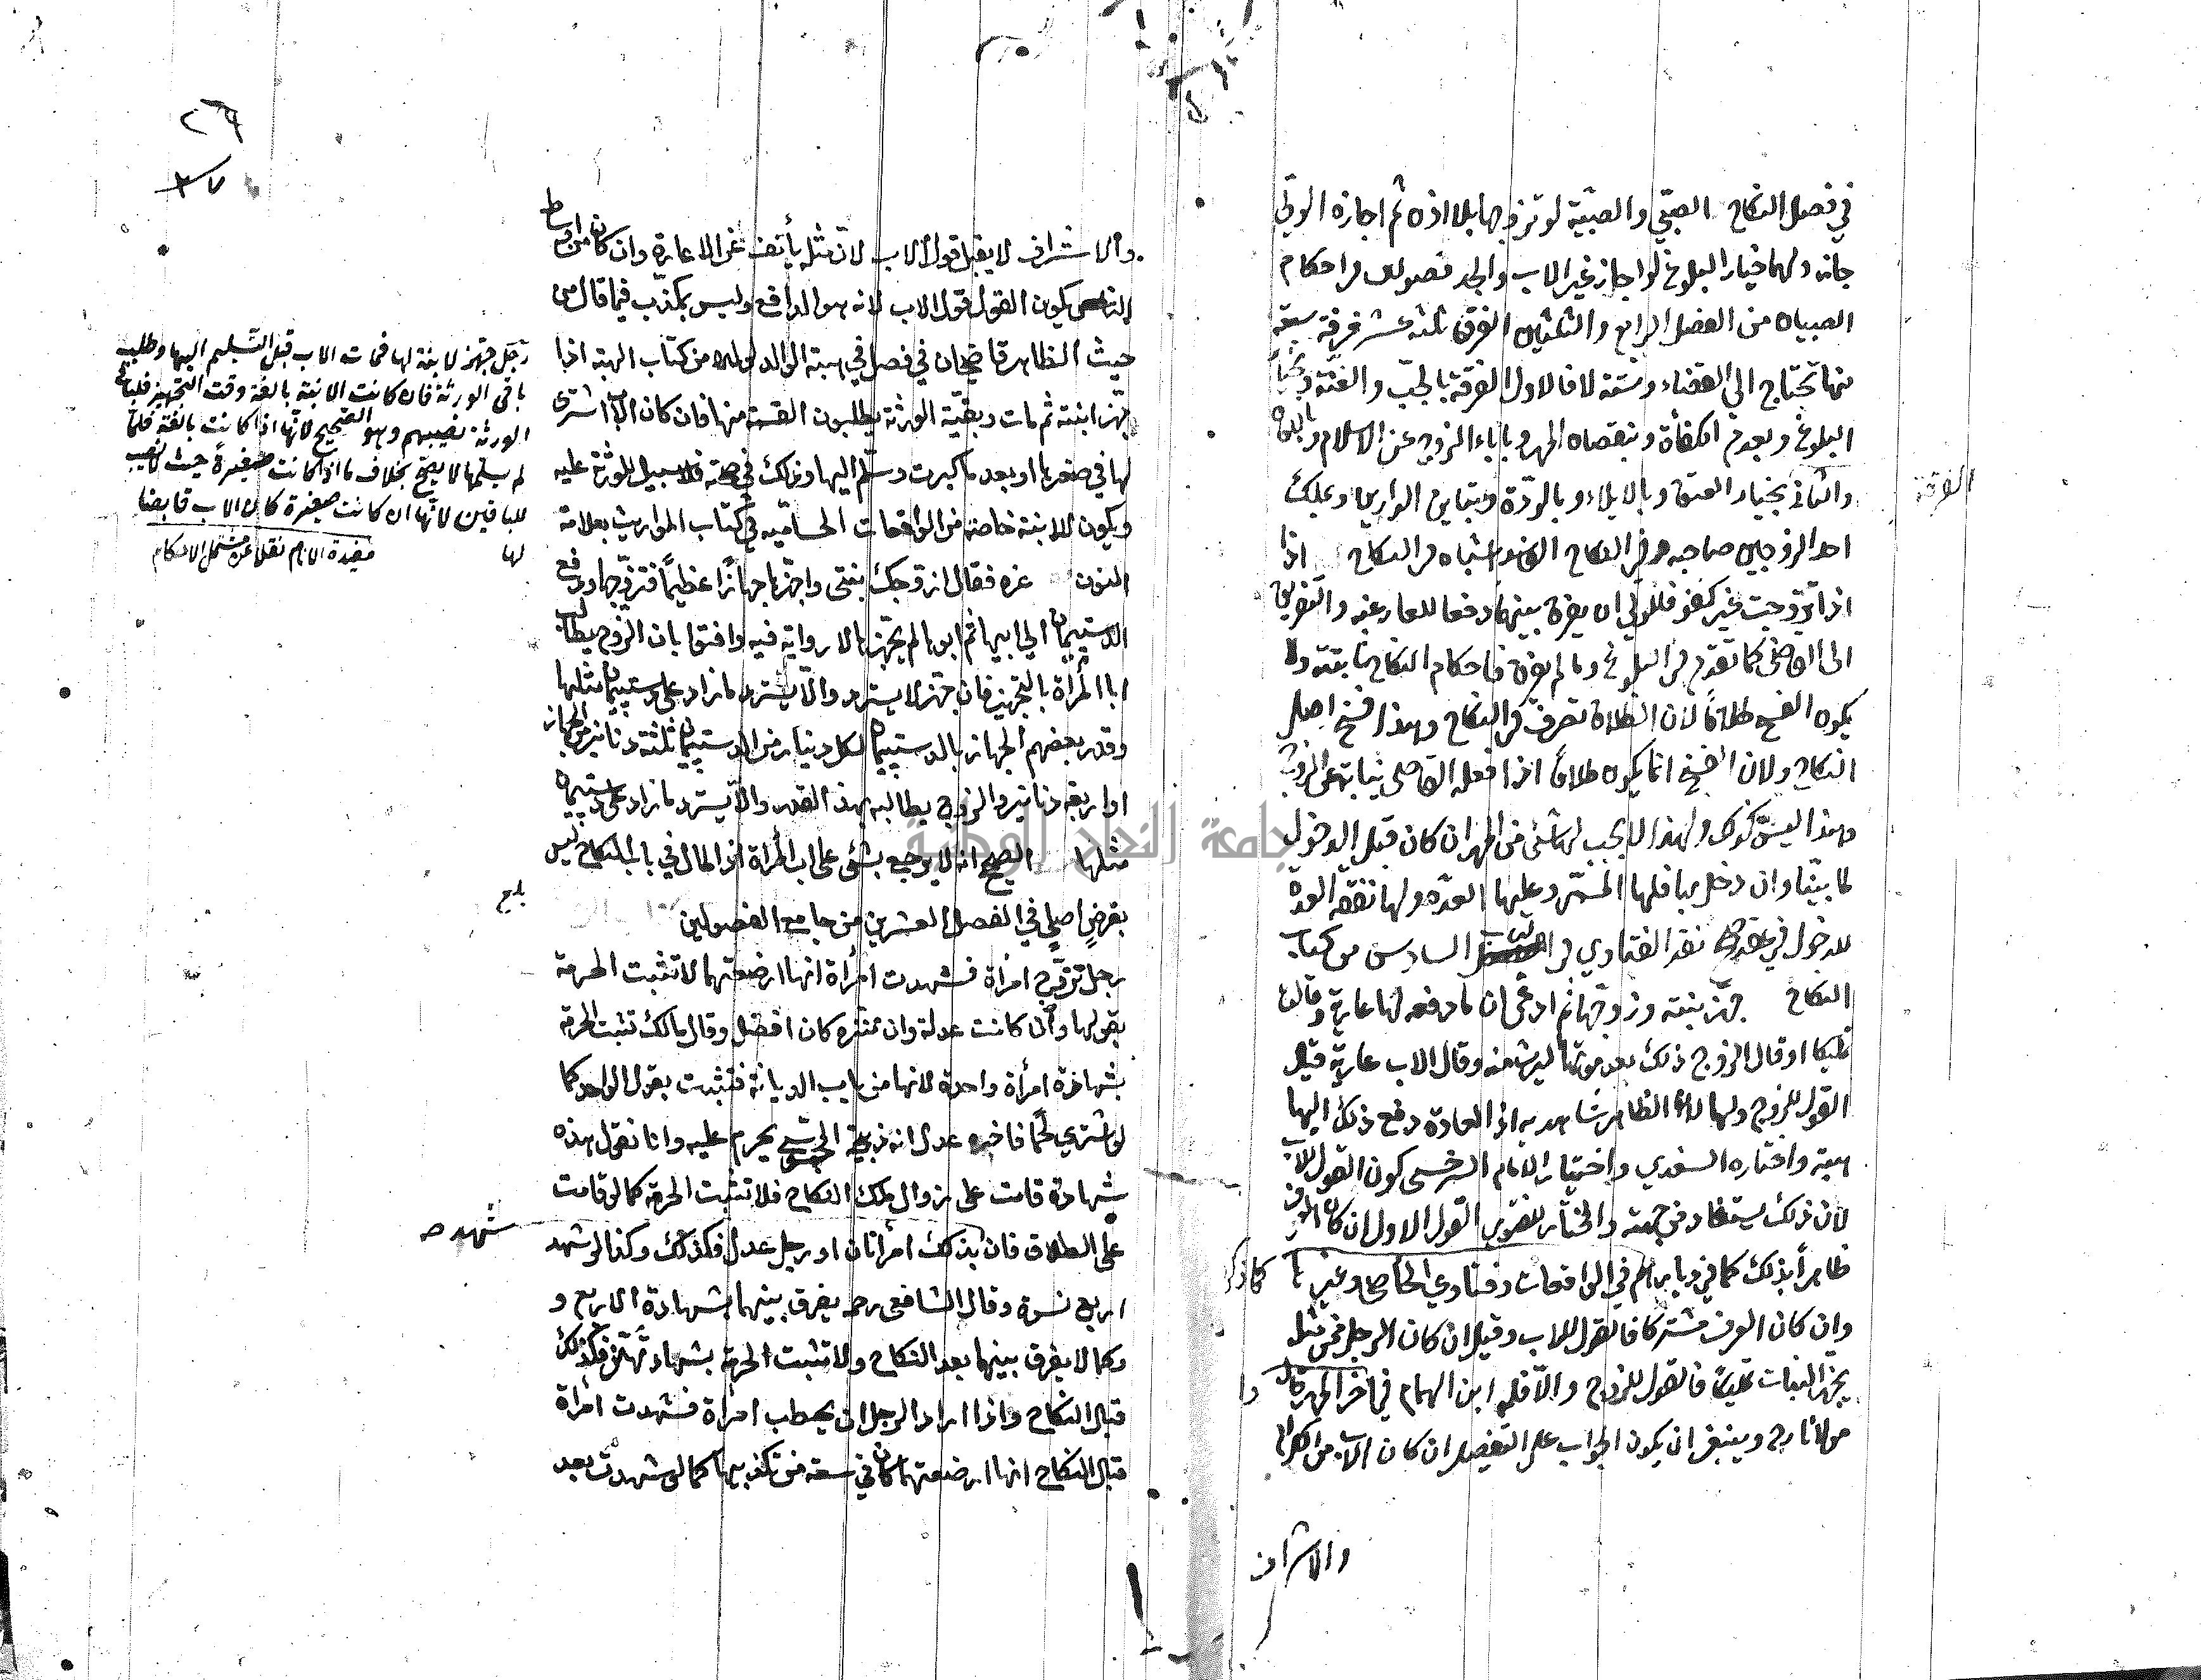 في فصل النكاح الصبي والصبية لو تزوجها بلا اذن ثم اجازه الولي
جاز ولهما خيار البلوغ لو اجاز غير الاب والجد فصولين من احكام
الصبيان من الفصل الرابع والثلثين الفرق ثلثة عشر فرقة سبعة
منها تحتاج الى القضاء وستة لا فالاول الفرقة بالجب والعنة وبخيار
البلوغ وبعدم الكفأة وبنقصان المهر وباباء الزوج عن الاسلام وباللعان
الفرقة
والثاني بخيار العتق وبالايلاء وبالردة وبتباين الدارين وبملك
احد الزوجين صاحبه وفي النكاح الفاسد اشباه من النكاح اذا
اذا تزوجت غير كفو فللولي ان يفرق بينهما دفعا للعار عنه والتفريق
الى القاضي كما تقدم في البلوغ وما لم يفرق فاحكام النكاح ثابتة ولا
يكون الفسخ طلاقا لان الطلاق تصرف في النكاح وهذا فسخ اصل
النكاح ولان الفسخ انما يكون طلاقا اذا فعله القاضي نيابة عن الزوج
وهذا ليس كذلك ولهذا لا يجب لها شئ من المهر ان كان قبل الدخول
لما بينا وان دخل بها فلها المسمى وعليها العدة ولها نفقة العدة
للدخول في نقد الفتاوي في السادس من كتاب
النكاح جهز بنته وزوجها ثم ادعى ان ما دفعه لها عارية وقالت
تمليكا او قال الزوج ذلك بعد موتها ليرث منه وقال الاب عارية قيل
القول للزوج ولها لان الظاهر شاهد به اذ العادة دفع ذلك اليها
هبة واختاره السغدي واختيار الامام السرخسي كون القول للاب
لان ذلك يستفاد من جهته والمختار للفتوى القول الاول ان كان العرف
ظاهرا بذلك كما في ديارهم في الواقعات وفتاوي الخاصي وغيرها كما ذكر
وان كان العرف مشتركا فالقول للاب وقيل ان كان الرجل من مثل
يجهز البنات تمليكا فالقول للزوج والا فله ابن الهمام في اخر المهر قال
مولانا رح وينبغي ان يكون الجواب على التفصيل ان كان الاب من اكرام
والاشراف
٣٧
والاشراف لا يقبل قول الاب لان مثله يأنف عن الاعارة وان كان من اوساط
الناس يكون القول قول الاب لانه هو الدافع وليس بمكذب فيما قال من
حيث الظاهر قاضيخان في فصل في هبة الوالد لولده من كتاب الهبة اذا
جهز ابنته ثم مات وبقية الورثة يطلبون القسمة منها فان كان الاب اشترى
لها في صغرها او بعد ما كبرت وسلم اليها وذلك في صحته فلا سبيل للورثة عليه
ويكون للابنة خاصة من الواقعات الحسامية في كتاب المواريث بعلامة
النون غره فقال ازوجك بنتي واجهزها جهازا عظيما فتزوجها ودفع
الدستيمان الى ابيها ثم ابوها لم يجهزها لا رواية فيه وافتوا بان الزوج يطالب
ابا المرأة بالتجهيز فان جهز لا يسترد والا يسترد ما زاد على دستيمان مثلها
وقدر بعضهم الجهاز بالدستيمان لكل دينار من الدستيمان ثلثة دنانير من الجهاز
او اربعة دنانير والزوج يطالبه بهذا القدر والا يسترد ما زاد على دستيمان
مثلها الصحيح انه لا يرجع بشئ على اب المرأة اذ المال في باب النكاح ليس
بفرض اصلي في الفصل العشرين من جامع الفصولين
رجل تزوج امرأة فشهدت امرأة انها ارضعتهما لا تثبت الحرمة
بقولها وان كانت عدلة وان تنزه كان افضل وقال مالك تثبت الحرمة
بشهادة امرأة واحدة لانها من باب الديانة فتثبت بقول الواحد كما
لو اشترى لحما فاخبره عدل انه ذبيحة المجوسي يحرم عليه وانا نقول هذه
شهادة قامت على زوال ملك النكاح فلا تثبت الحرمة كما لو قامت
على الطلاق فان بذلك امرأتان او رجل عدل فكذلك وكذا لو شهد
شهد صح
اربع نسوة وقال الشافعي رحمه يفرق بينهما بشهادة الاربع و
وكما لا يفرق بينهما بعد النكاح ولا تثبت الحرمة بشهادتهن فكذلك
قبل النكاح واذا اراد الرجل ان يخطب امرأة فشهدت امرأة
قبل النكاح انها ارضعتهما كان في سعة من تكذيبها كما لو شهدت بعد
رجل جهز لابنة لها فمات الاب قبل التسليم اليها وطلب
باقي الورثة فان كانت الابنة بالغة وقت التجهيز فلباقي
الورثة نصيبهم وهو الصحيح لانها اذا كانت بالغة فلما
لم يسلمها لا يصح بخلاف ما اذا كانت صغيرة حيث لا نصيب
للباقين لانها ان كانت صغيرة كان الاب قابضا
لها مفيدة الانام نقلا عن مشتمل الاحكام
جامعة النجاح الوطنية